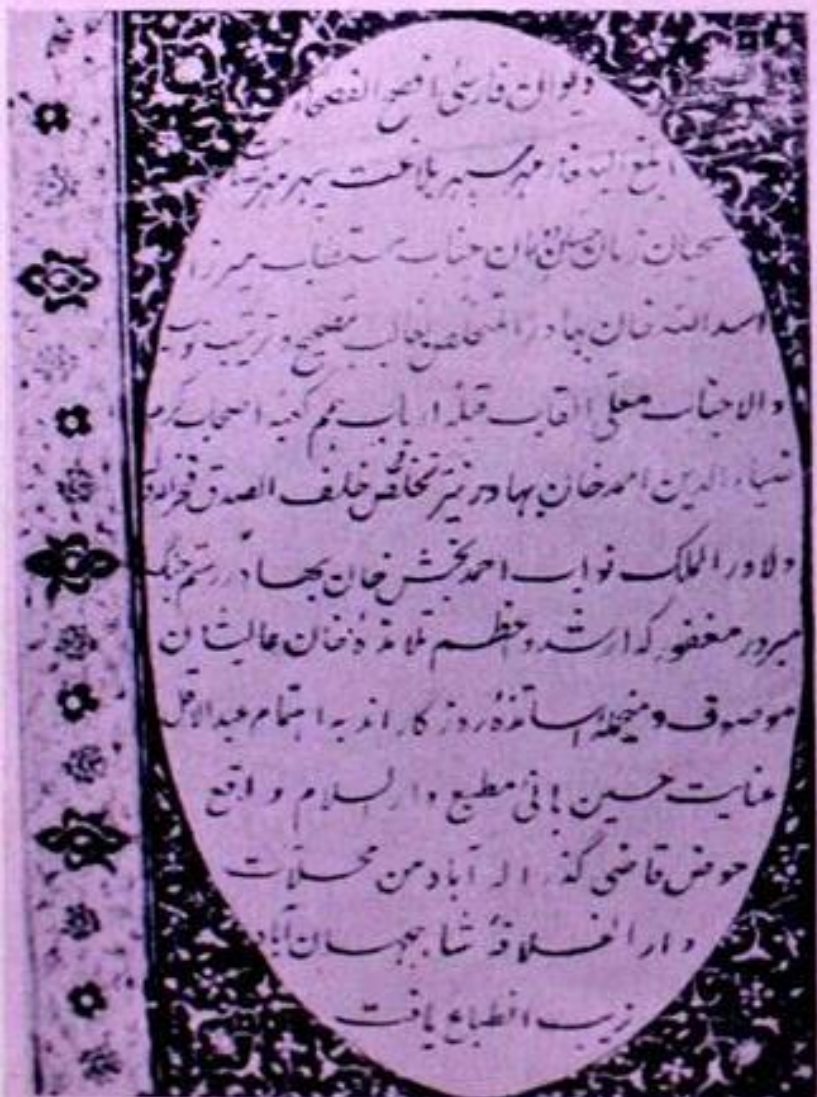 دیوان فارسی افصح الفصحا
ابلغ البلغا مهر سپهر بلاغت سپهر مهر
سحبان زمان حسان دوران جناب مستطاب میرزا
اسد الله خان بهادر المتخلص بغالب بتصحیح و ترتیب
والا جناب معلی القاب قبلهٔ ارباب همم کعبهٔ اصحاب کرم
ضیاء الدین احمد خان بهادر نیر تخلص خلف الصدق فخرالدوله
دلاور الملک نواب احمد بخش خان بهادر رستم جنگ
مبرور مغفور که ارشد و اعظم تلامذهٔ خان عالیشان
موصوف و منجملهٔ اساتذهٔ روزگار اند به اهتمام عبد الاقل
عنایت حسین بانی مطبع دار السلام واقع
حوض قاضی گذر اله آباد من محلات
دار الخلافهٔ شاهجهان آباد
زیب انطباع یافت